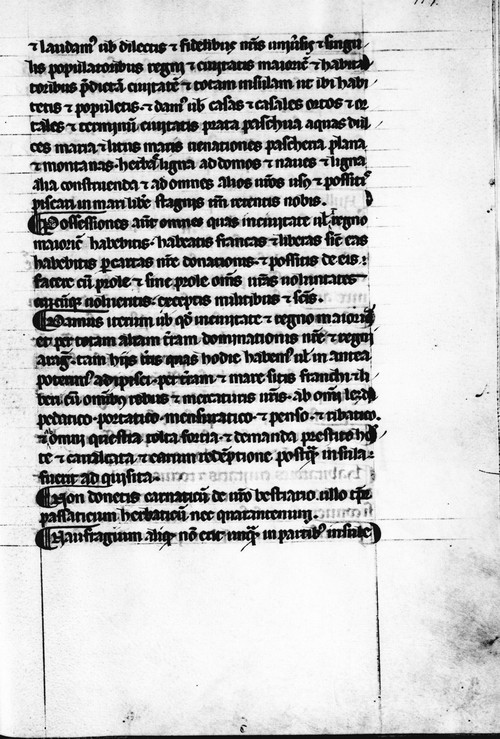 ⁊ laudam᷒ uob̄ dilectis ⁊ fidelibꝫ nr̄is uniuersis ⁊ singu
lis populatoribus regni ⁊ ciuitatis maioric̄ ⁊ habita
toribus p̄dictam ciuitatē ⁊ totam insulam ut ibi habi
tetis ⁊ populetis. ⁊ dam᷒ uob̄ casas ⁊ casales ortos ⁊ or
tales ⁊ terminū ciuitatis prata paschua aquas dul
ces maria ⁊ litus maris uenationes paschera plana
⁊ montanas. herbas ligna ad domos ⁊ naues ⁊ ligna
alia construenda ⁊ ad omnes alios ur̄os usꝫ ⁊ possitis
piscari in mari libe stagnis tm̄ retentis nobis.
Possessiones aut̄ omnes quas in ciuitate ul̓ regno
maioric̄ habebitis. habeatis francas ⁊ liberas sic̄ eas
habebitis ꝑ cartas nr̄e donationis. ⁊ possitis de eis
facere cū prole ⁊ sine prole om̄s ur̄as uoluntates
cuicūqꝫ uolueritis. exceptis militibus ⁊ sc̄is.
Damus iterum uob̄ qd̓ in ciuitate ⁊ regno maioric̄
et per totam aliam tr̄am dominationis nr̄e ⁊ regni
arag̓. tam hiis bn̄is quas hodie habetis ul̓ in antea
poteritis adipisci. per tr̄am ⁊ mare sitis franchi ⁊ li
beri cū omibꝫ rebus ⁊ mercaturis ur̄is. ab om̄i lezda
pedatico. portatico. mensuratico. ⁊ penso. ⁊ ribatico.
⁊ ab omni questia tolta fortia. ⁊ demanda prestito hos
te ⁊ caualcata ⁊ earum redēptione postqꝫ insula
fuerit adquisita.
Non donetis carnaticū de ur̄o bestiario. ullo tp̄r
passaticum herbaticū nec quarantenum.
Naufragium aliqꝫ nō erit unqꝫ in partibꝫ insule